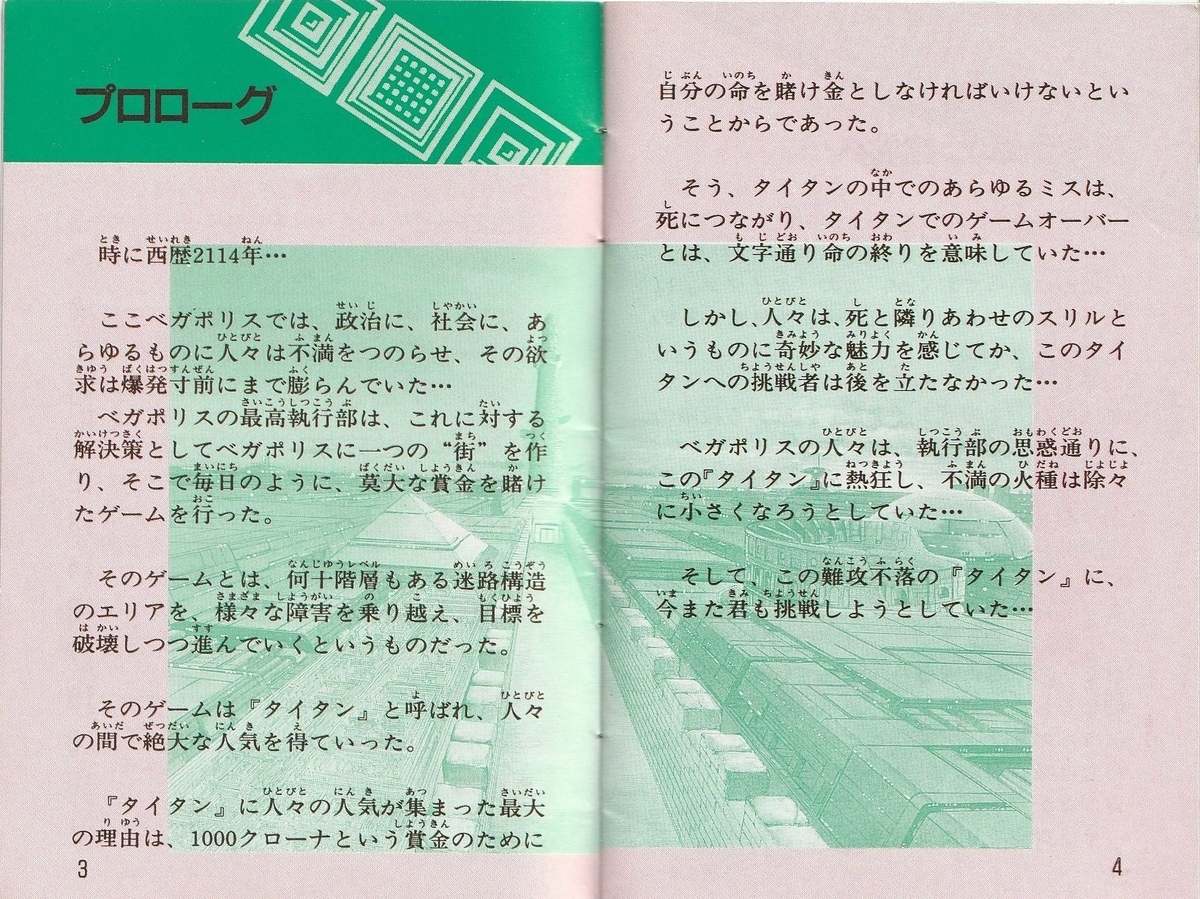 プロローグ
時に西歴2114年…
ここベガポリスでは、政治に、社会に、あ
らゆるものに人々は不満をつのらせ、その欲
求は爆発寸前にまで膨らんでいた…
ベガポリスの最高執行部は、これに対する
解決策としてベガポリスに一つの“街”を作
り、そこで毎日のように、莫大な賞金を賭け
たゲームを行った。
そのゲームとは、何十階層もある迷路構造
のエリアを、様々な障害を乗り越え、目標を
破壊しつつ進んでいくというものだった。
そのゲームは『タイタン』と呼ばれ、人々
の間で絶大な人気を得ていった。
『タイタン』に人々の人気が集まった最大
の理由は、1000クローナという賞金のために
3
自分の命を賭け金としなければいけないとい
うことからであった。
そう、タイタンの中でのあらゆるミスは、
死につながり、タイタンでのゲームオーバー
とは、文字通り命の終りを意味していた…
しかし、人々は、死と隣りあわせのスリルと
いうものに奇妙な魅力を感じてか、このタイ
タンへの挑戦者は後を立たなかった…
ベガポリスの人々は、執行部の思惑通りに、
この『タイタン』に熱狂し、不満の火種は除々
に小さくなろうとしていた…
そして、この難攻不落の『タイタン』に、
今また君も挑戦しようとしていた…
4